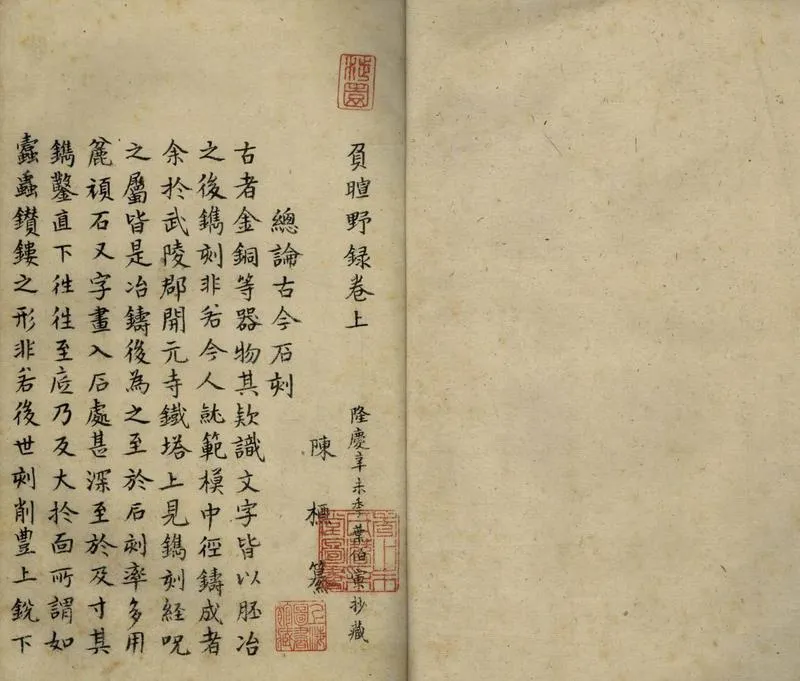 負暄野録卷上
隆慶辛未季葉伯寅抄藏
陳槱纂
總論古今石刻
古者金銅等器物其欵識文字皆以胚冶
之後鐫刻非若今人就範模中徑鑄成者
余於武陵郡開元寺鐵塔上見鐫刻経呪
之屬皆是冶鑄後為之至於石刻率多用
麄頑石又字畫入石處甚深至於及寸其
鐫鑿直下徃徃至底乃反大扵面所謂如
蠧蟲鑚鏤之形非若後世刻削豊上銳下